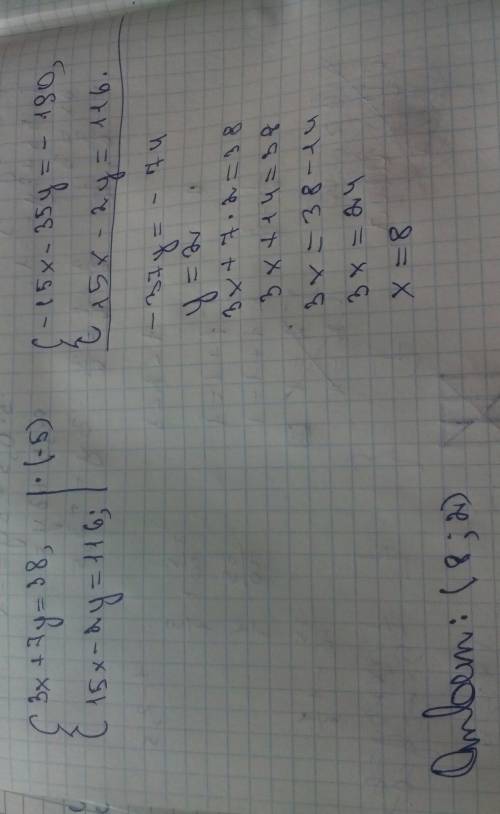 { 3x + 7y = 38, | · (-5)
{ 15x - 2y = 116; |
{ -15x - 35y = - 190,
{ 15x - 2y = 116.
-37y = - 74
y = 2
3x + 7 · 2 = 38
3x + 14 = 38
3x = 38 - 14
3x = 24
x = 8
Ответ: (8 ; 2)